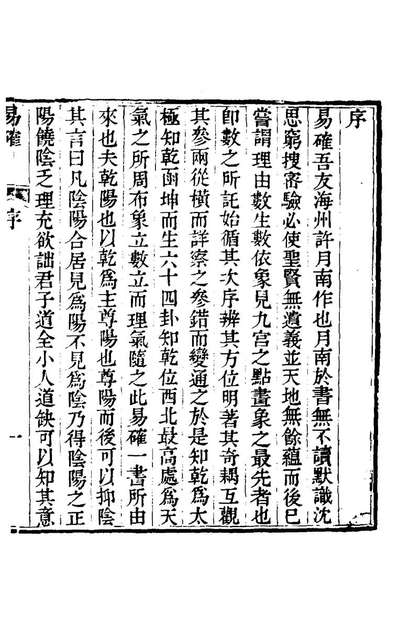 序
易確吾友海州許月南作也月南於書無不讀默識沈
思窮搜審驗必使聖賢無遺義並天地無餘蘊而後已
嘗謂理由數生數依象見九宫之點畫象之最先者也
卽數之所託始循其次序辨其方位明著其奇耦互觀
其參兩從橫而詳察之參錯而變通之於是知乾為太
極知乾函坤而生六十四卦知乾位西北最高處為天
氣之所周布象立數立而理氣隨之此易確一書所由
來也夫乾陽也以乾為主尊陽也尊陽而後可以抑陰
其言曰凡陰陽合居見為陽不見為陰乃得陰陽之正
陽饒陰乏理充欲詘君子道全小人道缺可以知其意
易確
序
一